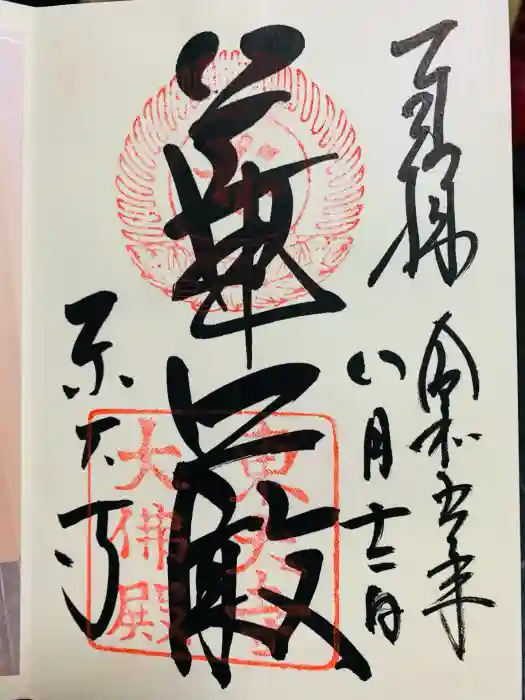 奉拝
令和五年
八月十二日
華厳
東大寺
東大寺
大佛殿